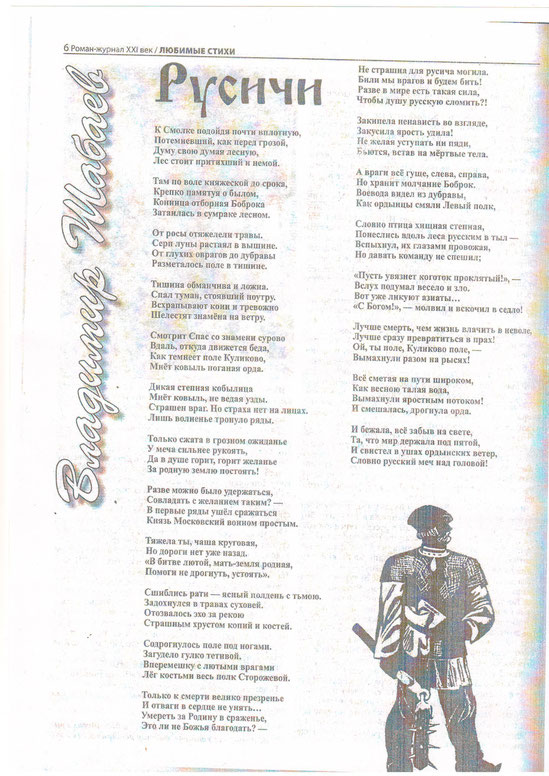 6 Роман-журнал XXI век / ЛЮБИМЫЕ СТИХИ
Владимир Шабаев
Русичи
К Смолке подойдя почти вплотную,
Потемневший, как перед грозой,
Думу свою думая лесную,
Лес стоит притихший и немой.
Там по воле княжеской до срока,
Крепко памятуя о былом,
Конница отборная Боброка
Затаилась в сумраке лесном.
От росы отяжелели травы.
Серп луны растаял в вышине.
От глухих оврагов до дубравы
Разметалось поле в тишине.
Тишина обманчива и ложна.
Спал туман, стоявший поутру.
Всхрапывают кони и тревожно
Шелестят знамёна на ветру.
Смотрит Спас со знамени сурово
Вдаль, откуда движется беда,
Как темнеет поле Куликово,
Мнёт ковыль поганая орда.
Дикая степная кобылица
Мнёт ковыль, не ведая узды.
Страшен враг. Но страха нет на лицах.
Лишь волненье тронуло ряды.
Только сжата в грозном ожиданье
У меча сильнее рукоять,
Да в душе горит, горит желанье
За родную землю постоять!
Разве можно было удержаться,
Совладать с желанием таким? —
В первые ряды ушёл сражаться
Князь Московский воином простым.
Тяжела ты, чаша круговая,
Но дороги нет уже назад.
«В битве лютой, мать-земля родная,
Помоги не дрогнуть, устоять».
Сшиблись рати — ясный полдень с тьмою.
Задохнулся в травах суховей.
Отозвалось эхо за рекою
Страшным хрустом копий и костей.
Содрогнулось поле под ногами.
Загудело гулко тетивой.
Вперемешку с лютыми врагами
Лёг костьми весь полк Сторожевой.
Только к смерти велико презренье
И отваги в сердце не унять…
Умереть за Родину в сраженье,
Это ли не Божья благодать? —
Не страшна для русича могила.
Били мы врагов и будем бить!
Разве в мире есть такая сила,
Чтобы душу русскую сломить?!
Закипела ненависть во взгляде,
Закусила ярость удила!
Не желая уступать ни пяди,
Бьются, встав на мёртвые тела.
А враги всё гуще, слева, справа,
Но хранит молчание Боброк.
Воевода видел из дубравы,
Как ордынцы смяли Левый полк,
Словно птица хищная степная,
Понеслись вдоль леса русским в тыл —
Вспыхнул, их глазами провожая,
Но давать команду не спешил;
«Пусть увязнет коготок проклятый!», —
Вслух подумал весело и зло.
Вот уже ликуют азиаты…
«С Богом!», — молвил и вскочил в седло!
Лучше смерть, чем жизнь влачить в неволе,
Лучше сразу превратиться в прах!
Ой, ты поле, Куликово поле, —
Вымахнули разом на рысях!
Всё сметая на пути широком,
Как весною талая вода,
Вымахнули яростным потоком!
И смешалась, дрогнула орда.
И бежала, всё забыв на свете,
Та, что мир держала под пятой,
И свистел в ушах ордынских ветер,
Словно русский меч над головой!